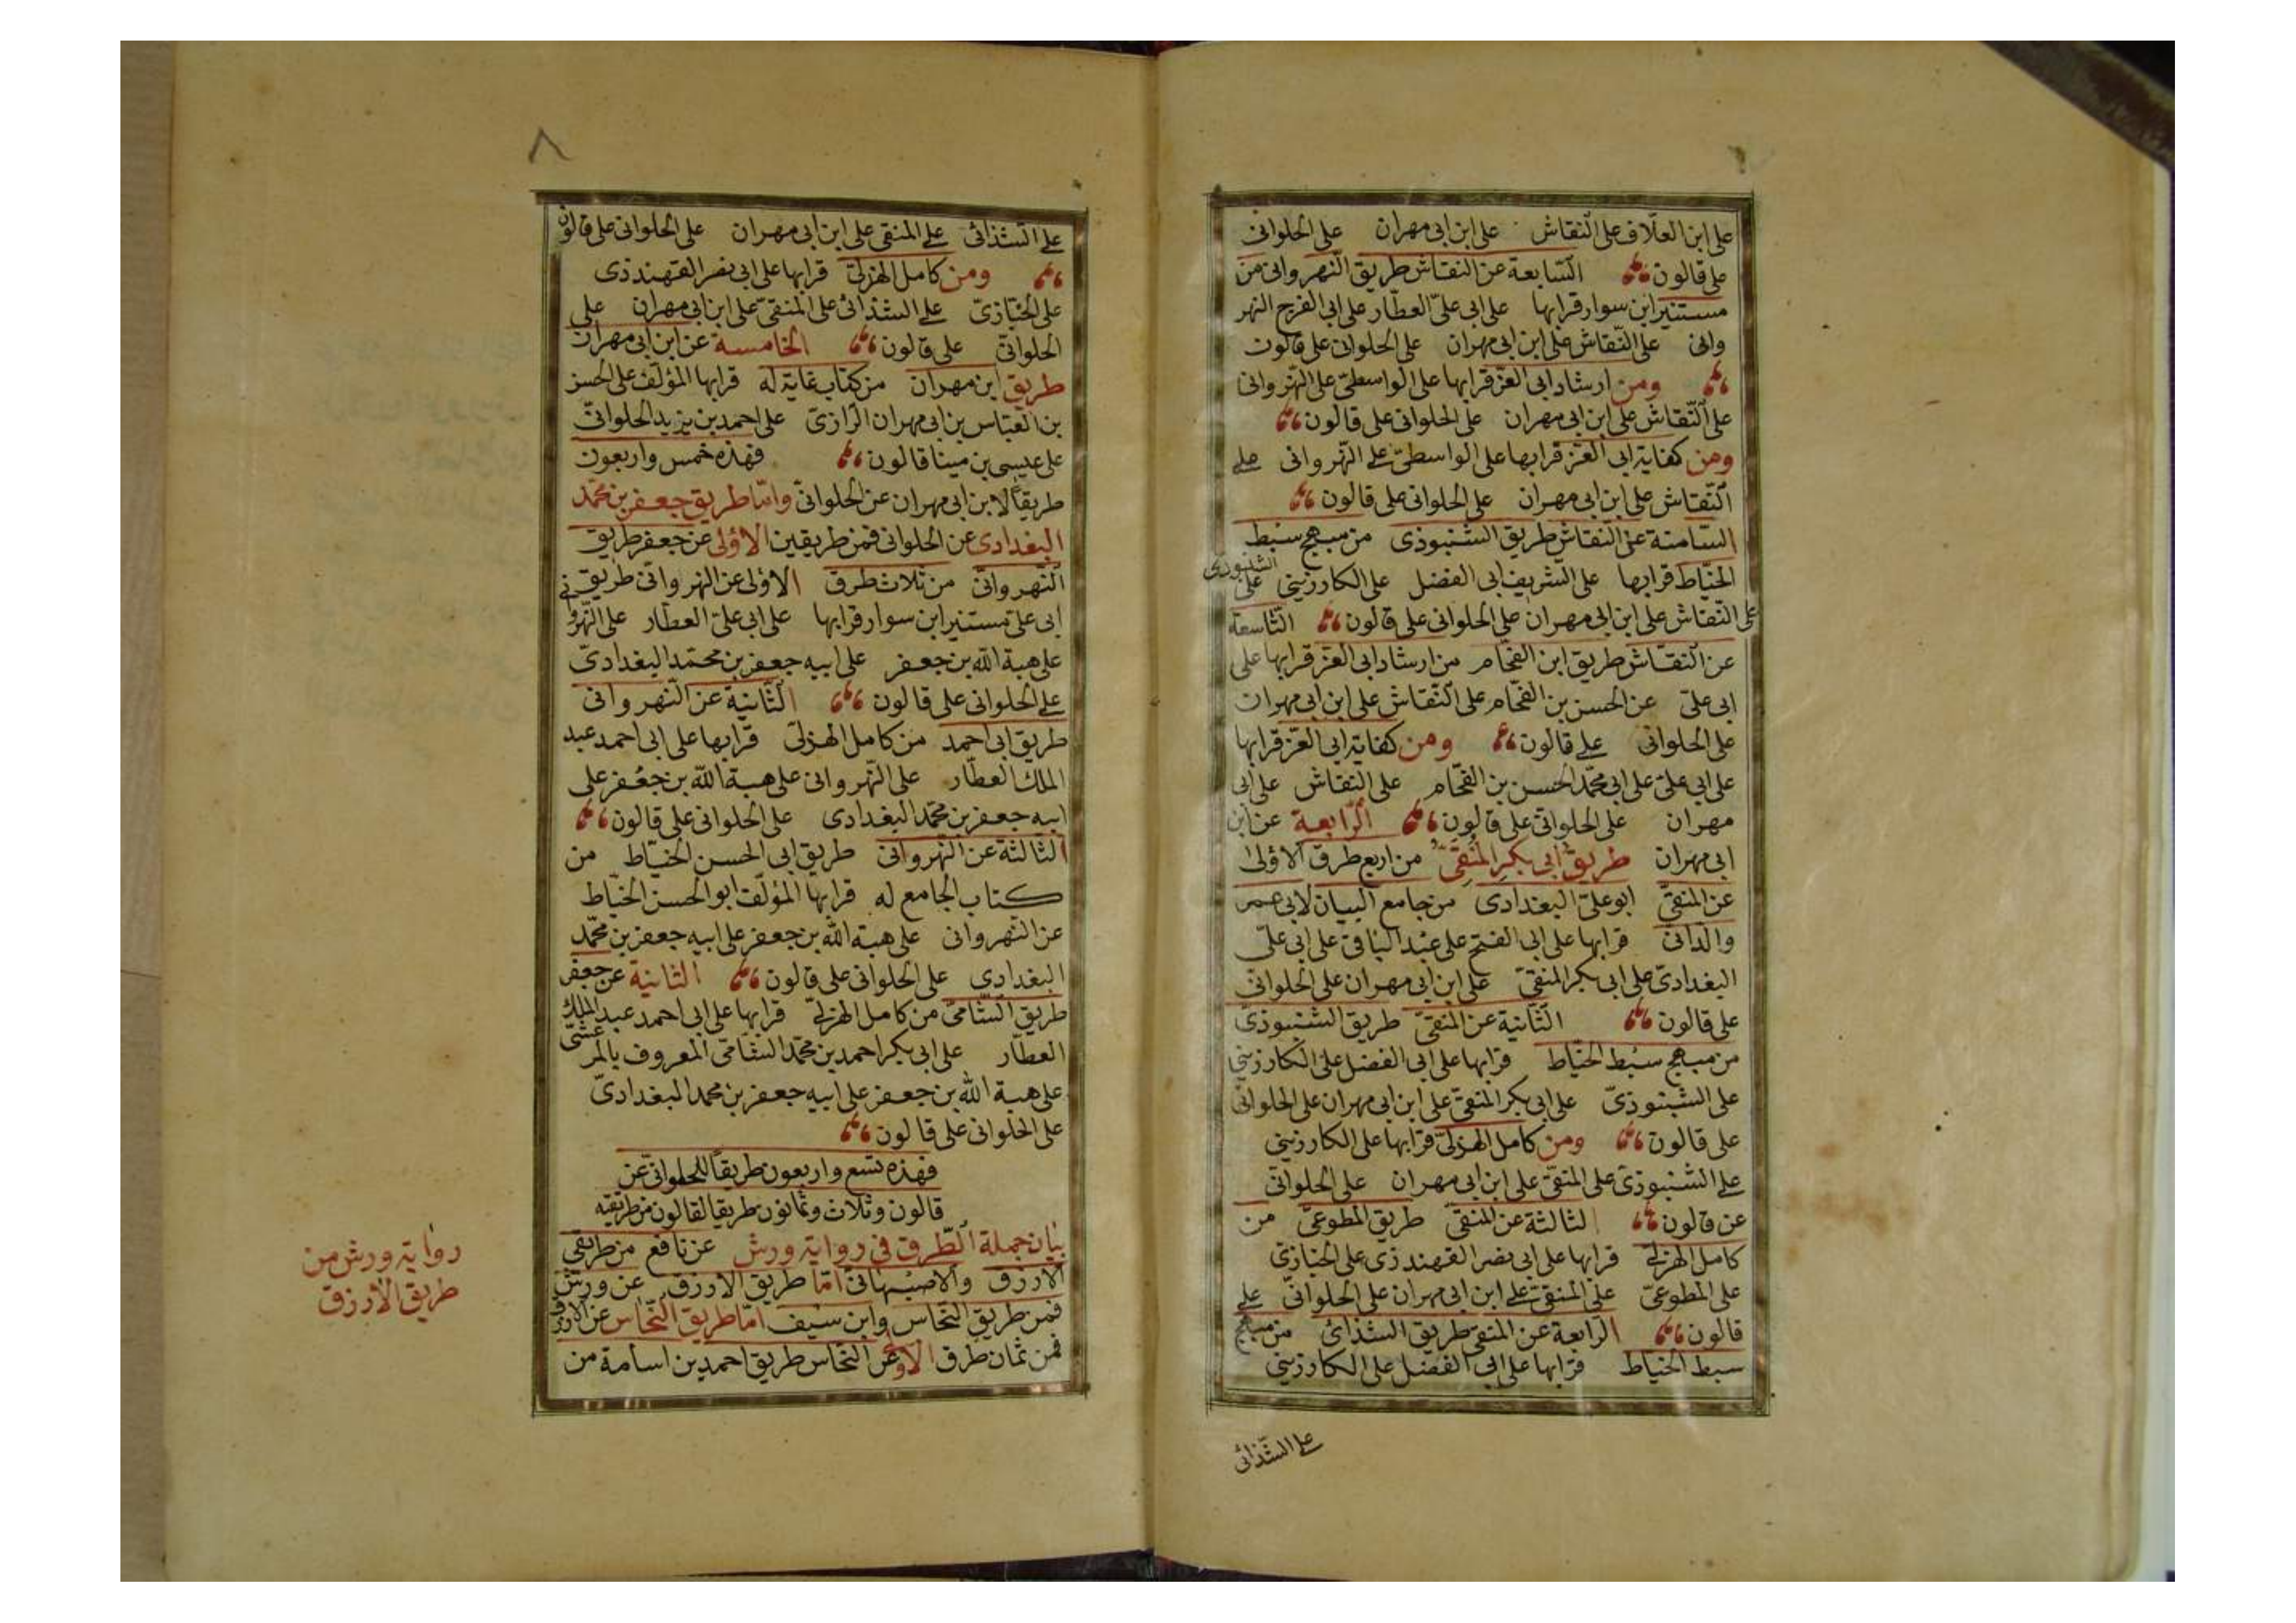 على ابن العلاف على النقاش على ابن ابى مهران على الحلوانى
على قالون السابعة عن النقاش طريق النهروانى من
مستنير ابن سوار قرا بها على ابى على العطار على ابى الفرج النهر
وانى على النقاش على ابن ابى مهران على الحلوانى على قالون
ومن ارشاد ابى العز قرا بها على الواسطى على النهروانى
على النقاش على ابن ابى مهران على الحلوانى على قالون
ومن كفاية ابى العز قرا بها على الواسطى على النهروانى على
النقاش على ابن ابى مهران على الحلوانى على قالون
الثامنة عن النقاش طريق الشنبوذى من مبهج سبط
الخياط قرا بها على الشريف ابى الفضل على الكارزينى على الشنبوذى
على النقاش على ابن ابى مهران على الحلوانى على قالون التاسعة
عن النقاش طريق ابن الفحام من ارشاد ابى العز قرا بها على
ابى على عن الحسن بن الفحام على النقاش على ابن ابى مهران
على الحلوانى على قالون ومن كفاية ابى العز قرا بها
على ابى على على ابى محمد الحسن بن الفحام على النقاش على ابى
مهران على الحلوانى على قالون الرابعة عن ابن
ابى مهران طريق ابى بكر المنقى من اربع طرق الاولى
عن المنقى ابو على البغدادى من جامع البيان لابى عمر
والدانى قرا بها على ابى الفتح على عبد الباقى على ابى على
البغدادى على ابى بكر المنقى على ابن ابى مهران على الحلوانى
على قالون الثانية عن المنقى طريق الشنبوذى
من مبهج سبط الخياط قرا بها على ابى الفضل على الكارزينى
على الشنبوذى على ابى بكر المنقى على ابن ابى مهران على الحلوانى
على قالون ومن كامل الهزلى قرا بها على الكارزينى
على الشنبوذى على المنقى على ابن ابى مهران على الحلوانى
عن قالون الثالثة عن المنقى طريق المطوعى من
كامل الهزلى قرا بها على ابى نصر القهندذى على الخبازى
على المطوعى على المنقى على ابن ابى مهران على الحلوانى على
قالون الرابعة عن المنقى طريق الشذائى من مبهج
سبط الخياط قرا بها على ابى الفضل على الكارزينى
على الشذائى
٨
على الشذائى على المنقى على ابن ابى مهران على الحلوانى على قالون
ومن كامل الهزلى قرا بها على ابى نصر القهندذى
على الخبازى على الشذائى على المنقى على ابن ابى مهران على
الحلوانى على قالون الخامسة عن ابن ابى مهران
طريق ابن مهران من كتاب غاية له قرا بها المؤلف على الحسن
بن العباس بن ابى مهران الرازى على احمد بن يزيد الحلوانى
على عيسى بن مينا قالون فهذه خمس واربعون
طريقا لابن ابى مهران عن الحلوانى واما طريق جعفر بن محمد
البغدادى عن الحلوانى فمن طريقين الاولى عن جعفر طريق
النهروانى من ثلاث طرق الاولى عن النهروانى طريق
ابى على مستنير ابن سوار قرا بها على ابى على العطار على النهروانى
على هبة الله بن جعفر على ابيه جعفر بن محمد البغدادى
على الحلوانى على قالون الثانية عن النهروانى
طريق ابى احمد من كامل الهزلى قرا بها على ابى احمد عبد
الملك العطار على النهروانى على هبة الله بن جعفر على
ابيه جعفر بن محمد البغدادى على الحلوانى على قالون
الثالثة عن النهروانى طريق ابى الحسن الخياط من
كتاب الجامع له قرا بها المؤلف ابو الحسن الخياط
عن النهروانى على هبة الله بن جعفر على ابيه جعفر بن محمد
البغدادى على الحلوانى على قالون الثانية عن جعفر
طريق الشامى من كامل الهزلى قرا بها على ابى احمد عبد الملك
العطار على ابى بكر احمد بن محمد الشامى المعروف بالمرعشى
على هبة الله بن جعفر على ابيه جعفر بن محمد البغدادى
على الحلوانى على قالون
فهذه تسع واربعون طريقا للحلوانى عن
قالون وثلاث وثمانون طريقا لقالون من طريقيه
بيان جملة الطرق فى رواية ورش عن نافع من طريقى
الازرق والاصبهانى اما طريق الازرق عن ورش
فمن طريق النحاس وابن سيف اما طريق النحاس عن الازرق
فمن ثمان طرق الاولى عن النحاس طريق احمد بن اسامة من
رواية ورش من
طريق الازرق